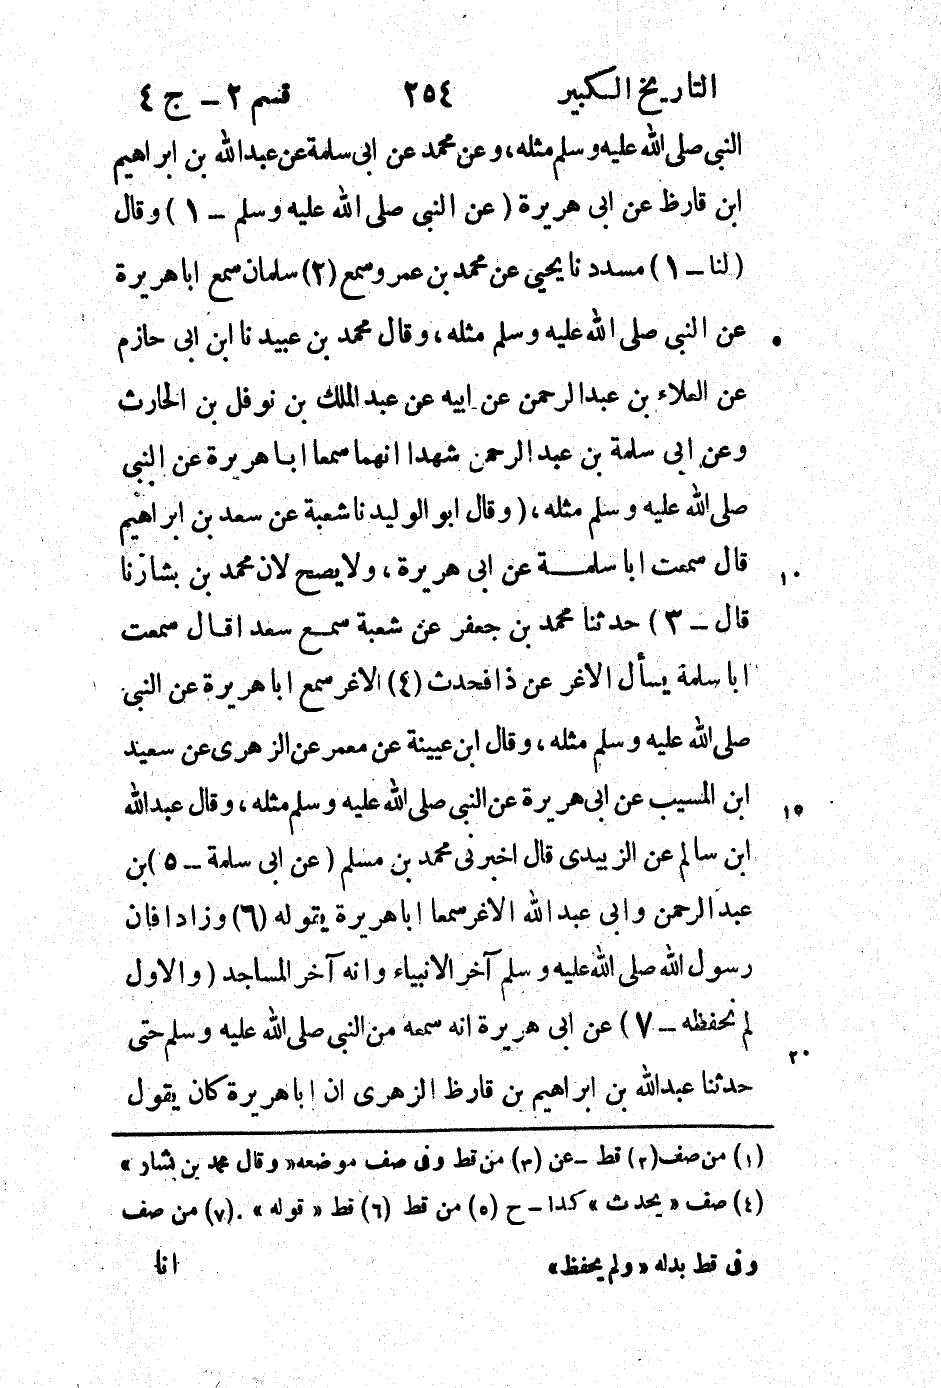 التاريخ الكبير ٢٥٤ قسم ٢ – ج ٤
النبى صلى الله عليه وسلم مثله، وعن محمد عن ابى سلمة عن عبدالله بن ابراهيم
ابن قارظ عن ابى هريرة ( عن النبى صلى الله عليه وسلم – ١ ) وقال
( لنا – ١ ) مسدد نا يحيى عن محمد بن عمر وسمع (٢) سلمان سمع اباهريرة
عن النبى صلى الله عليه وسلم مثله، وقال محمد بن عبيد نا ابن ابى حازم
عن العلاء بن عبدالرحمن عن ابيه عن عبد الملك بن نوفل بن الحارث
وعن ابى سلمة بن عبد الرحمن شهدا انهما سمعا ابا هريرة عن النبى
صلى الله عليه وسلم مثله، ( وقال ابو الوليد نا شعبة عن سعد بن ابراهيم
قال سمعت ابا سلمة عن ابى هريرة، ولا يصح لان محمد بن بشار نا ١٠
قال – ٣ ) حدثنا محمد بن جعفر عن شعبة سمع سعدا قال سمعت
ابا سلمة يسأل الاغر عن ذا فحدث (٤) الاغر سمع اباهريرة عن النبى
صلى الله عليه وسلم مثله، وقال ابن عيينة عن معمر عن الزهرى عن سعيد
ابن المسيب عن ابى هريرة عن النبى صلى الله عليه وسلم مثله، وقال عبدالله ١٥
ابن سالم عن الزبيدى قال اخبرنى محمد بن مسلم ( عن ابى سلمة – ٥ ) بن
عبدالرحمن وابى عبدالله الاغر سمعا اباهريرة يقوله (٦) وزاد افان
رسول الله صلى الله عليه وسلم آخر الانبياء وانه آخر المساجد ( والاول
لم نحفظه – ٧ ) عن ابى هريرة انه سمعه من النبى صلى الله عليه وسلم حتى
حدثنا عبدالله بن ابراهيم بن قارظ الزهرى ان اباهريرة كان يقول ٢٠
(١) من صف (٢) قط – عن (٣) من قط وفى صف موضعه « وقال محمد بن بشار »
(٤) صف « يحدث » كذا – ح (٥) من قط (٦) قط « قوله » . (٧) من صف
وفى قط بدله « ولم يحفظ »
انا